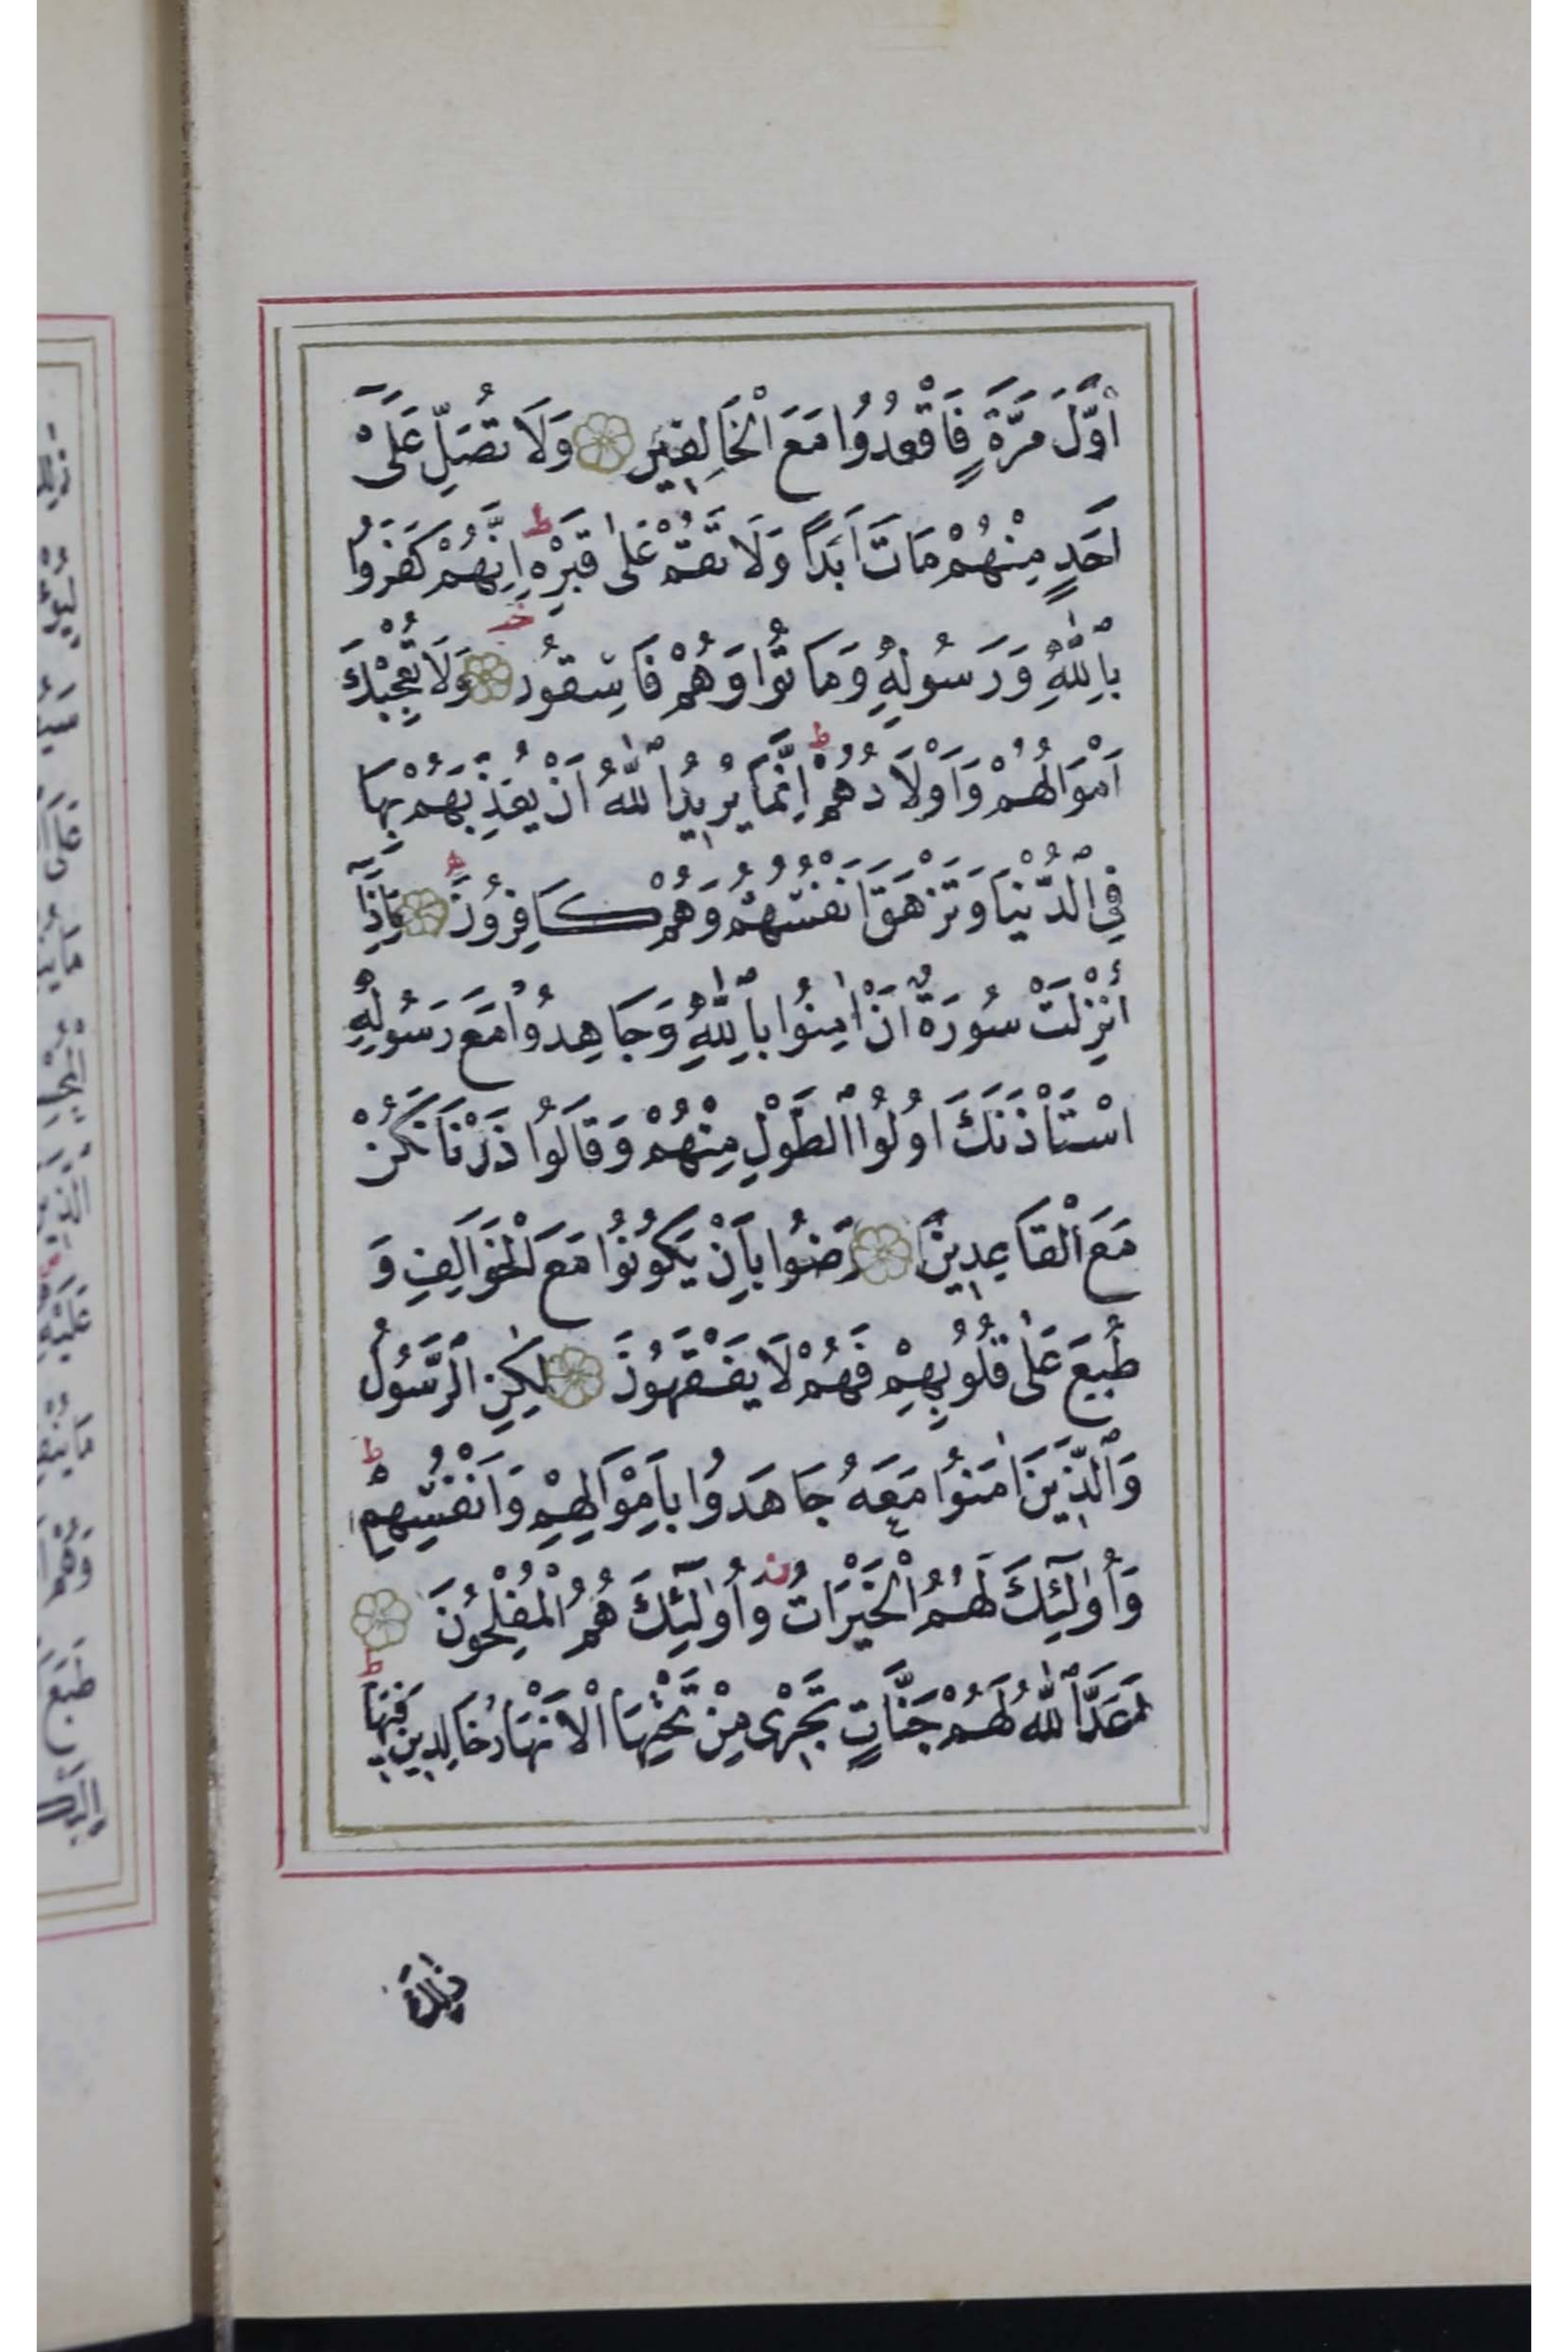 اَوَّلَ مَرَّةٍ فَاقْعُدُوا مَعَ الْخَالِفِينَ وَلَا تُصَلِّ عَلَىٰ
اَحَدٍ مِنْهُمْ مَاتَ اَبَدًا وَلَا تَقُمْ عَلٰى قَبْرِهِ ط اِنَّهُمْ كَفَرُوا
بِاللّٰهِ وَرَسُولِهِ وَمَاتُوا وَهُمْ فَاسِقُونَ وَلَا تُعْجِبْكَ
اَمْوَالُهُمْ وَاَوْلَادُهُمْ ط اِنَّمَا يُرِيدُ اللّٰهُ اَنْ يُعَذِّبَهُمْ بِهَا
فِي الدُّنْيَا وَتَزْهَقَ اَنْفُسُهُمْ وَهُمْ كَافِرُونَ وَاِذَا
اُنْزِلَتْ سُورَةٌ اَنْ اٰمِنُوا بِاللّٰهِ وَجَاهِدُوا مَعَ رَسُولِهِ
اسْتَأْذَنَكَ اُولُوا الطَّوْلِ مِنْهُمْ وَقَالُوا ذَرْنَا نَكُنْ
مَعَ الْقَاعِدِينَ رَضُوا بِاَنْ يَكُونُوا مَعَ الْخَوَالِفِ وَ
طُبِعَ عَلٰى قُلُوبِهِمْ فَهُمْ لَا يَفْقَهُونَ لٰكِنِ الرَّسُولُ
وَالَّذِينَ اٰمَنُوا مَعَهُ جَاهَدُوا بِاَمْوَالِهِمْ وَاَنْفُسِهِمْ ط
وَاُولٰئِكَ لَهُمُ الْخَيْرَاتُ وَاُولٰئِكَ هُمُ الْمُفْلِحُونَ
اَعَدَّ اللّٰهُ لَهُمْ جَنَّاتٍ تَجْرِى مِنْ تَحْتِهَا الْاَنْهَارُ خَالِدِينَ فِيهَا ط
ذٰلِكَ